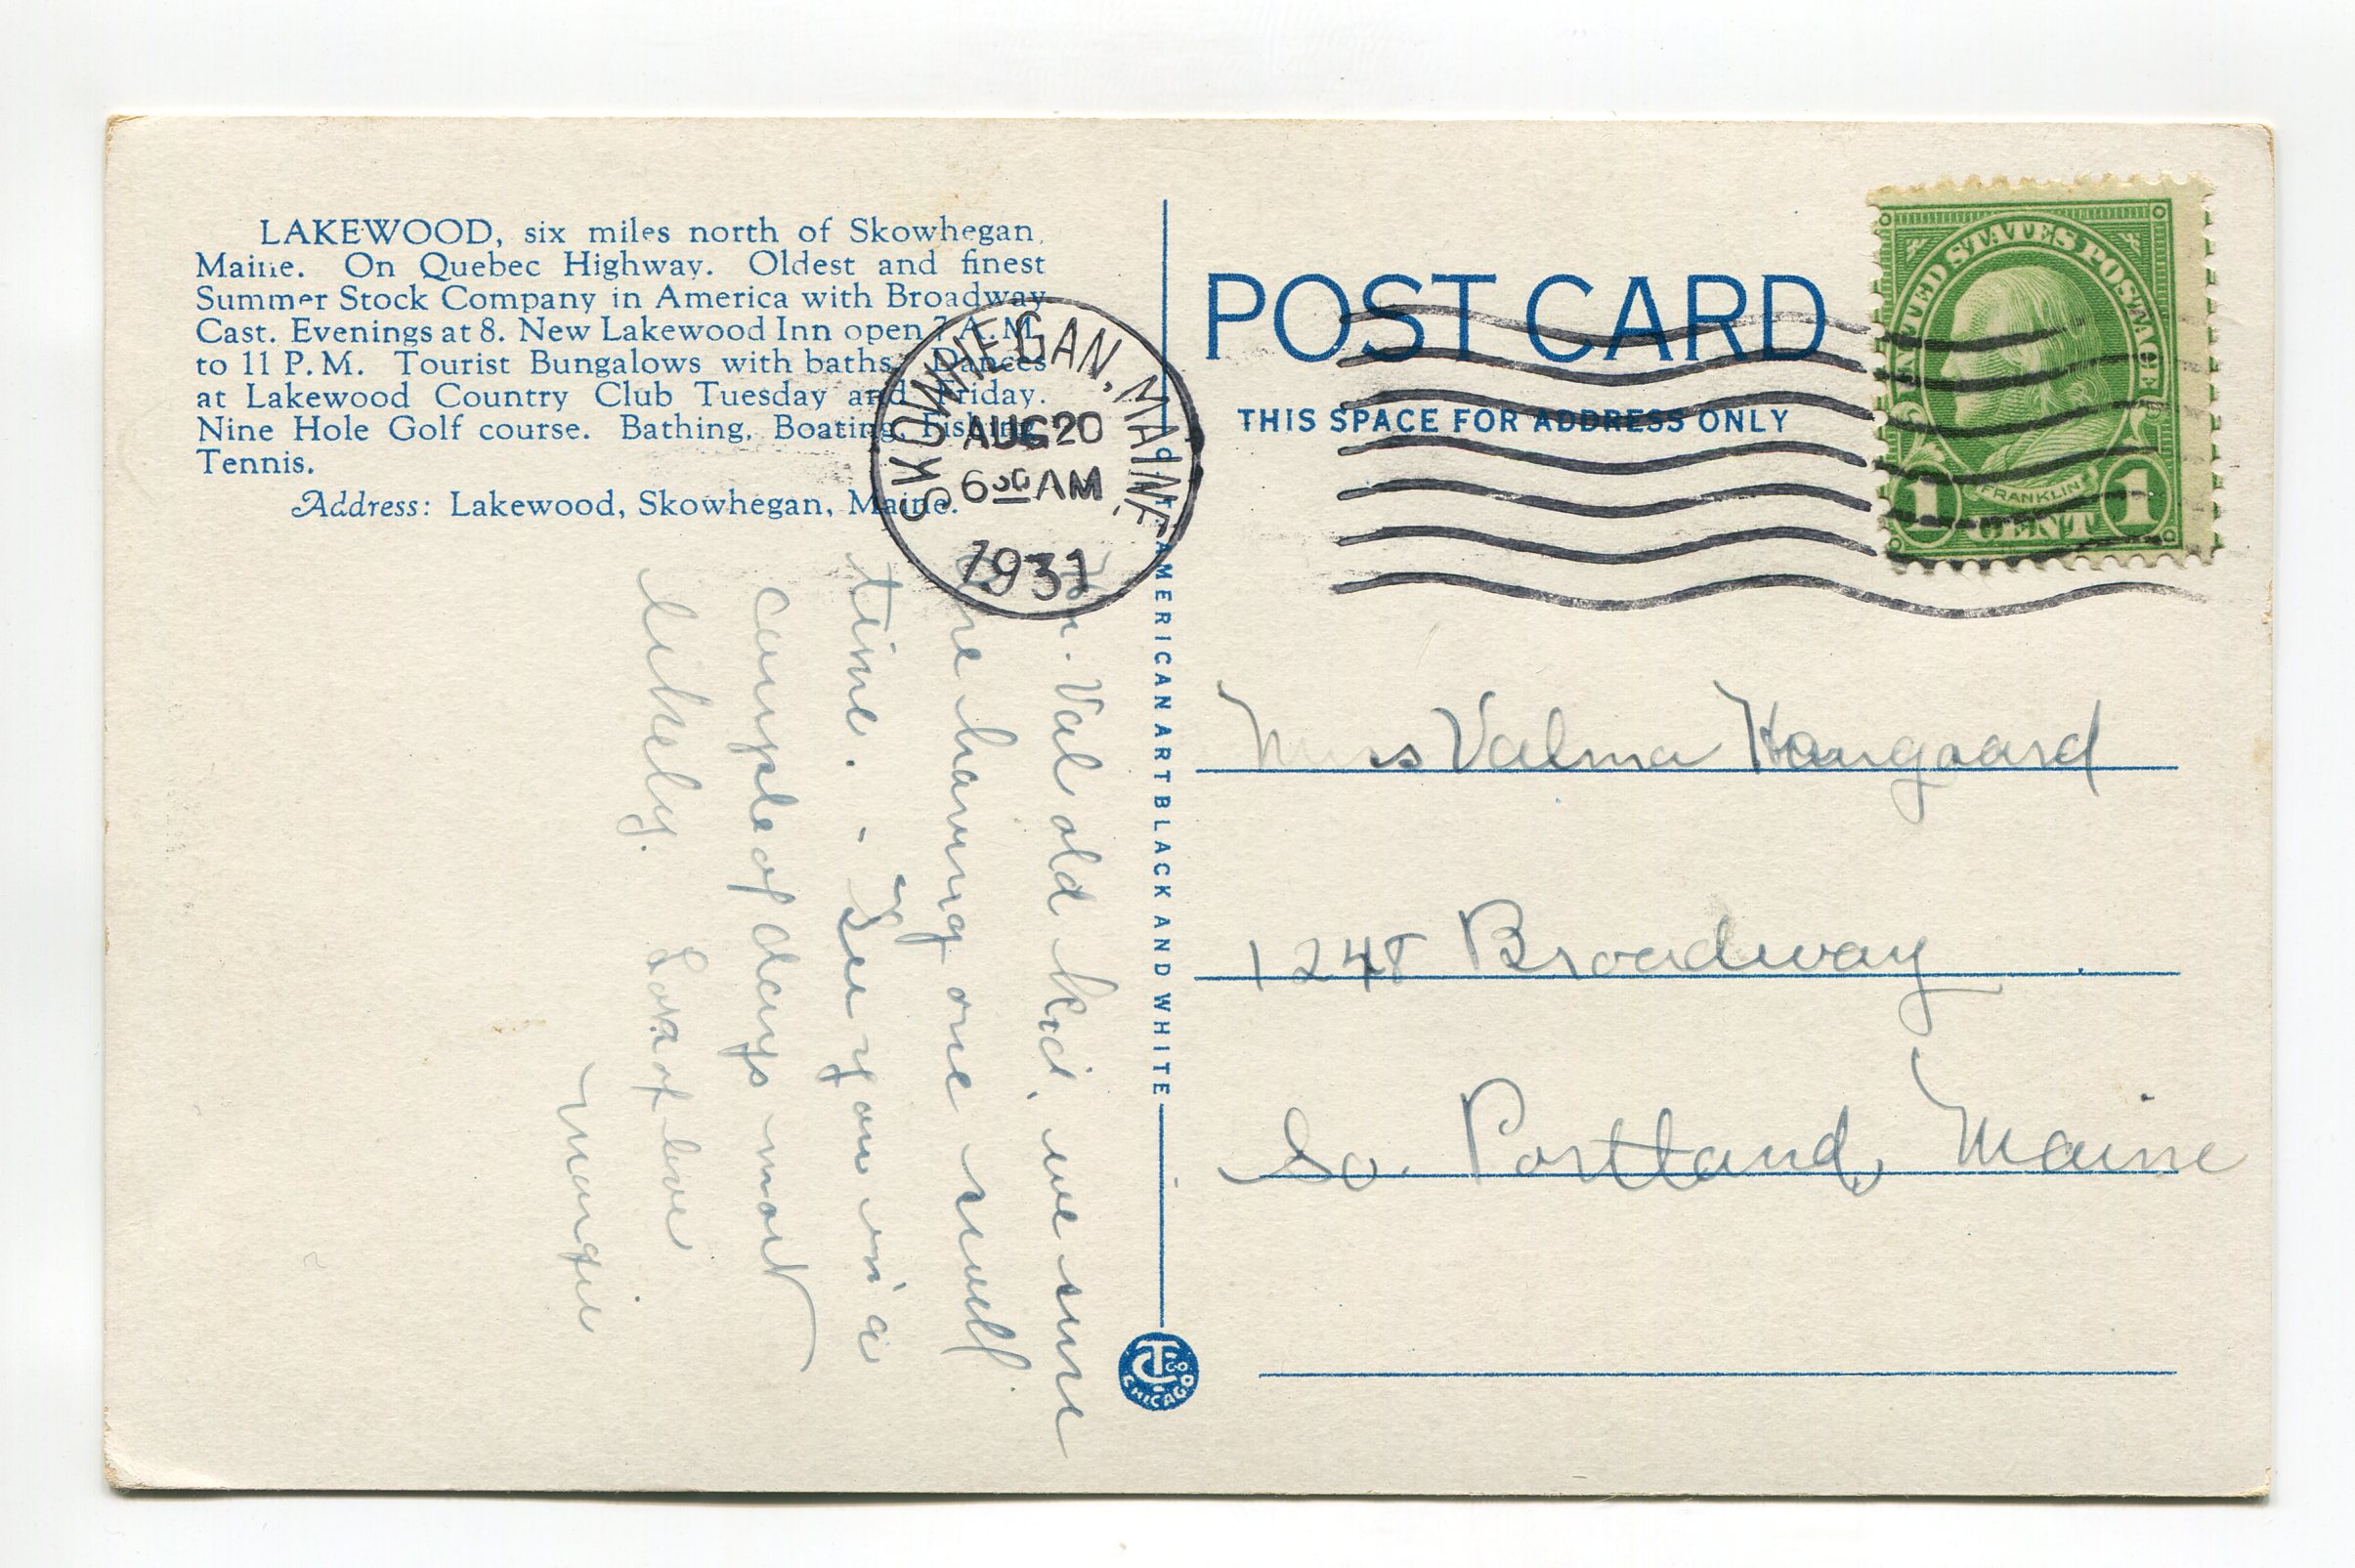 LAKEWOOD, six miles north of Skowhegan,
Maine. On Quebec Highway. Oldest and finest
Summer Stock Company in America with Broadway
Cast. Evenings at 8. New Lakewood Inn open 7 A.M.
to 11 P.M. Tourist Bungalows with baths. Dances
at Lakewood Country Club Tuesday and Friday.
Nine Hole Golf course. Bathing, Boating, Fishing,
Tennis.
Address: Lakewood, Skowhegan, Maine.
Val old kid, we sure
are having one swell
time. - See you in a
couple of days most
likely.
Lots of love
Margie
SKOWHEGAN, MAINE
AUG 20
6 30 AM
1931
C. T. AMERICAN ART BLACK AND WHITE
CT CO. CHICAGO
POST CARD
THIS SPACE FOR ADDRESS ONLY
UNITED STATES POSTAGE
FRANKLIN
1 CENT 1
Miss Valma Haugaard
1248 Broadway
So. Portland, Maine